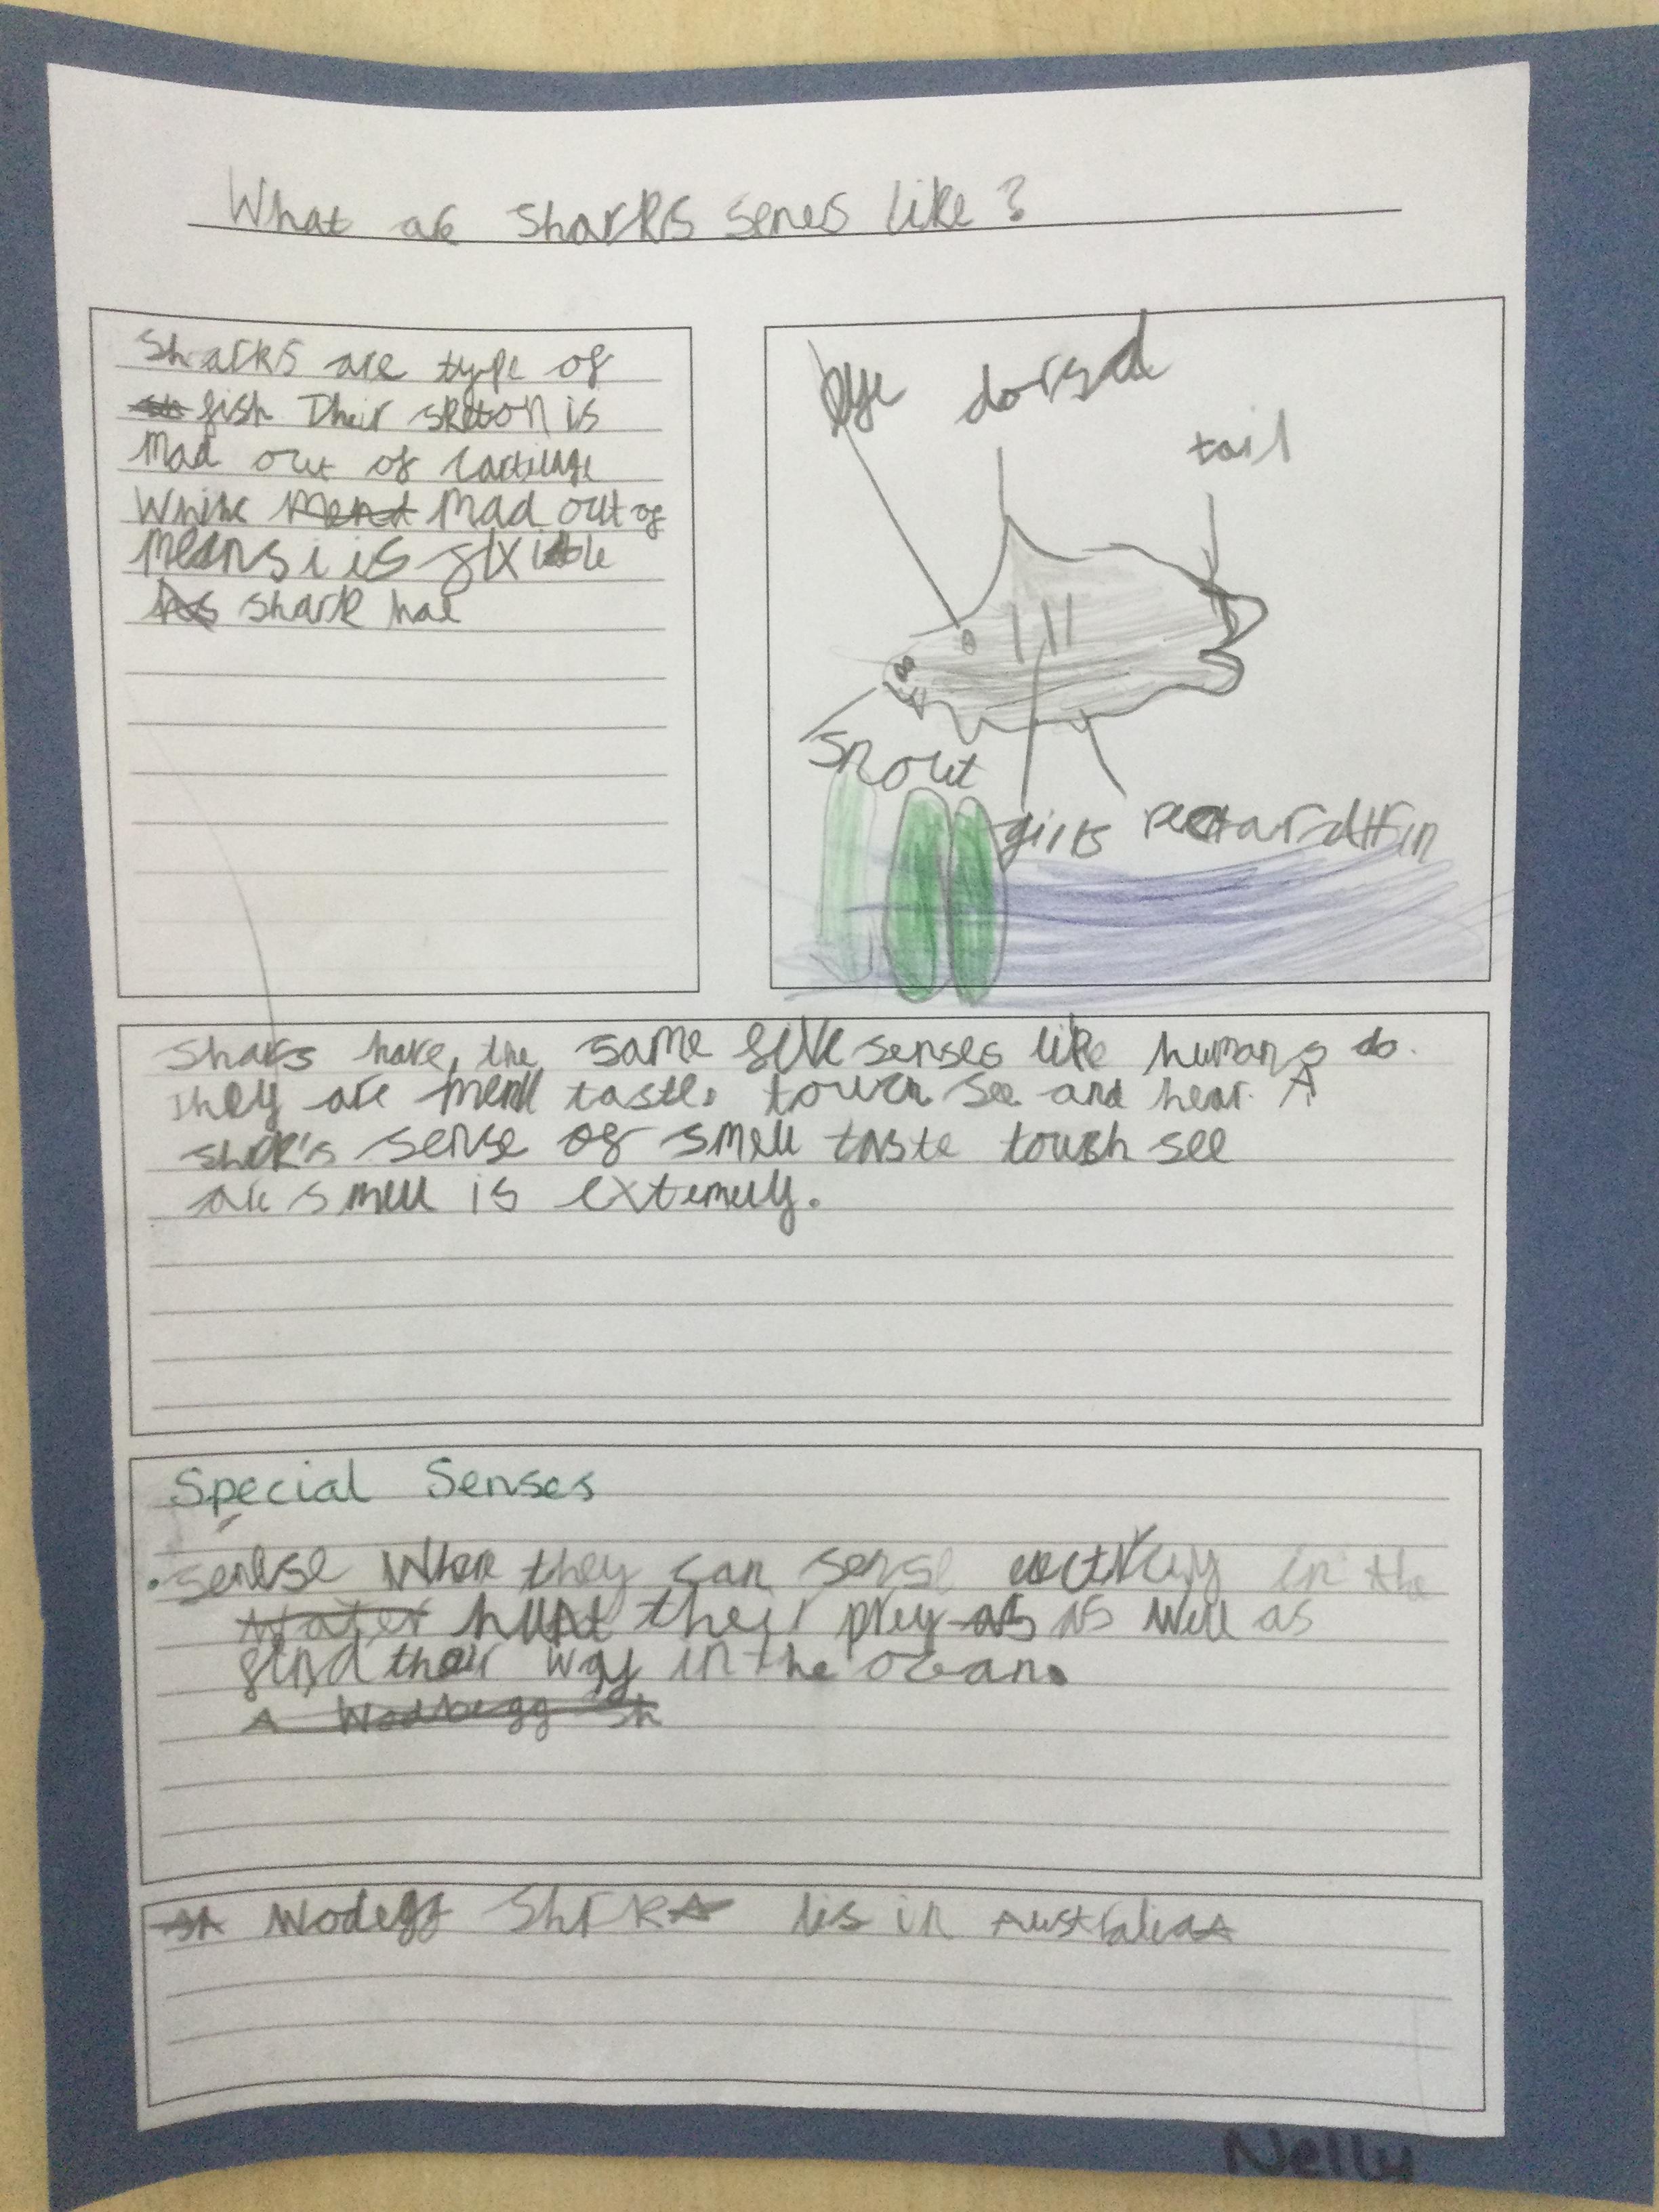 What are Sharks senes like?
Sharks are type of
fish Their skleton is
Mad out of cartilage
Whihc Ment Mad out of
Means i is flxible
has shark hae
eye dorsal
tail
snout
gills
sharks have the same five senses like humans do.
They are smell taste. touch see and hear. A
shark's sense of smell taste toush see
are smell is extemely.
Special Senses
senese Where they can sense in the
Water hunt their prey as as well as
find their way in the ocean.
A Wodbegg Sh
Wodegg ShrkA lis in Australia
Nelly